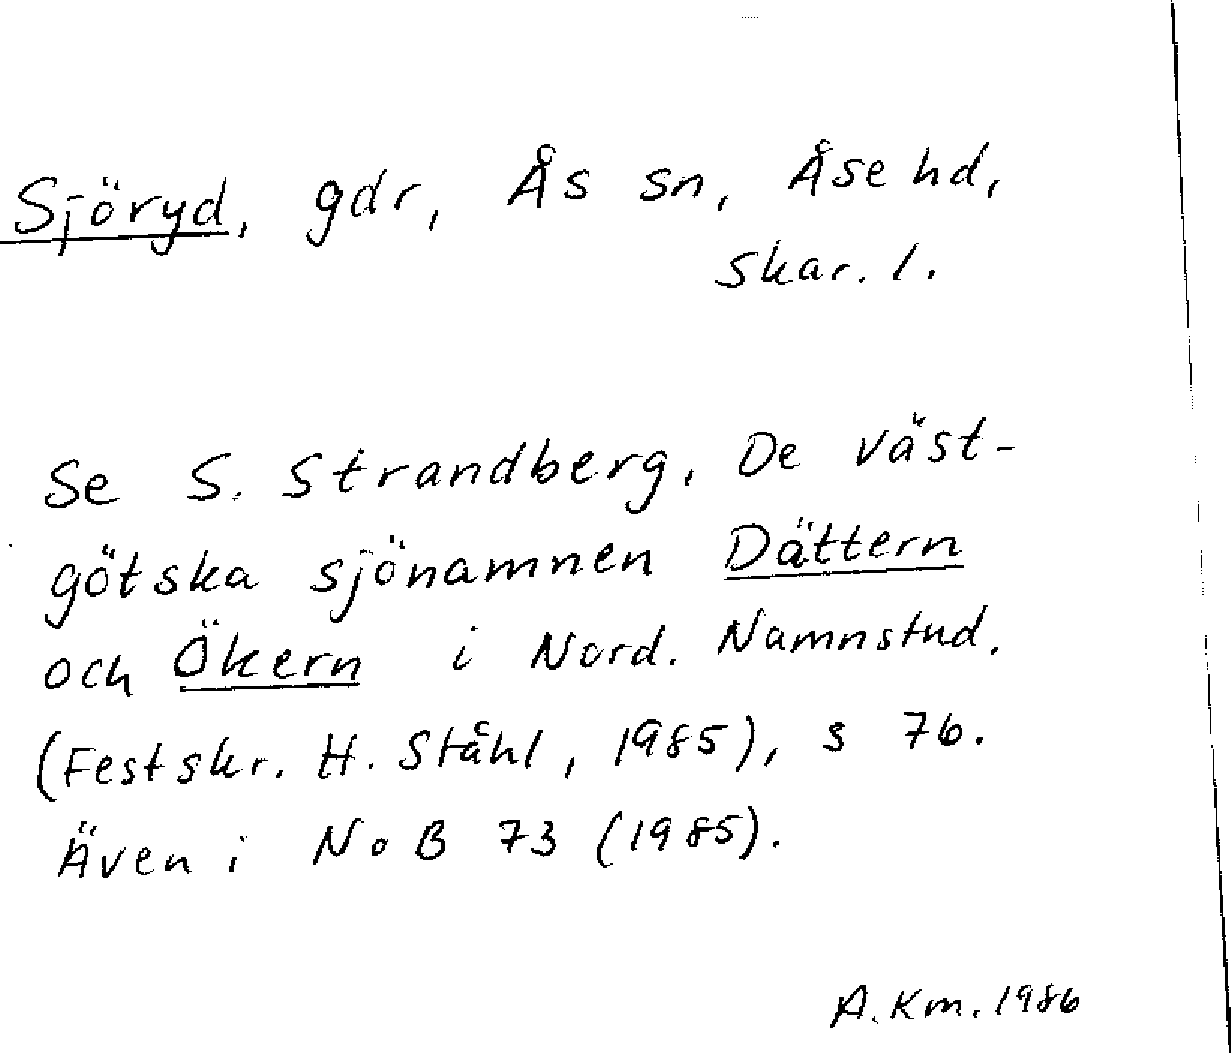 Sjöryd, gdr, Ås sn, Åse hd,
Skar. l.
Se S. Strandberg, De väst-
götska sjönamnen Dättern
och Ökern i Nord. Namnstud.
(Festskr. H. Ståhl, 1985), s 76.
Även i NoB 73 (1985).
A. Km. 1986